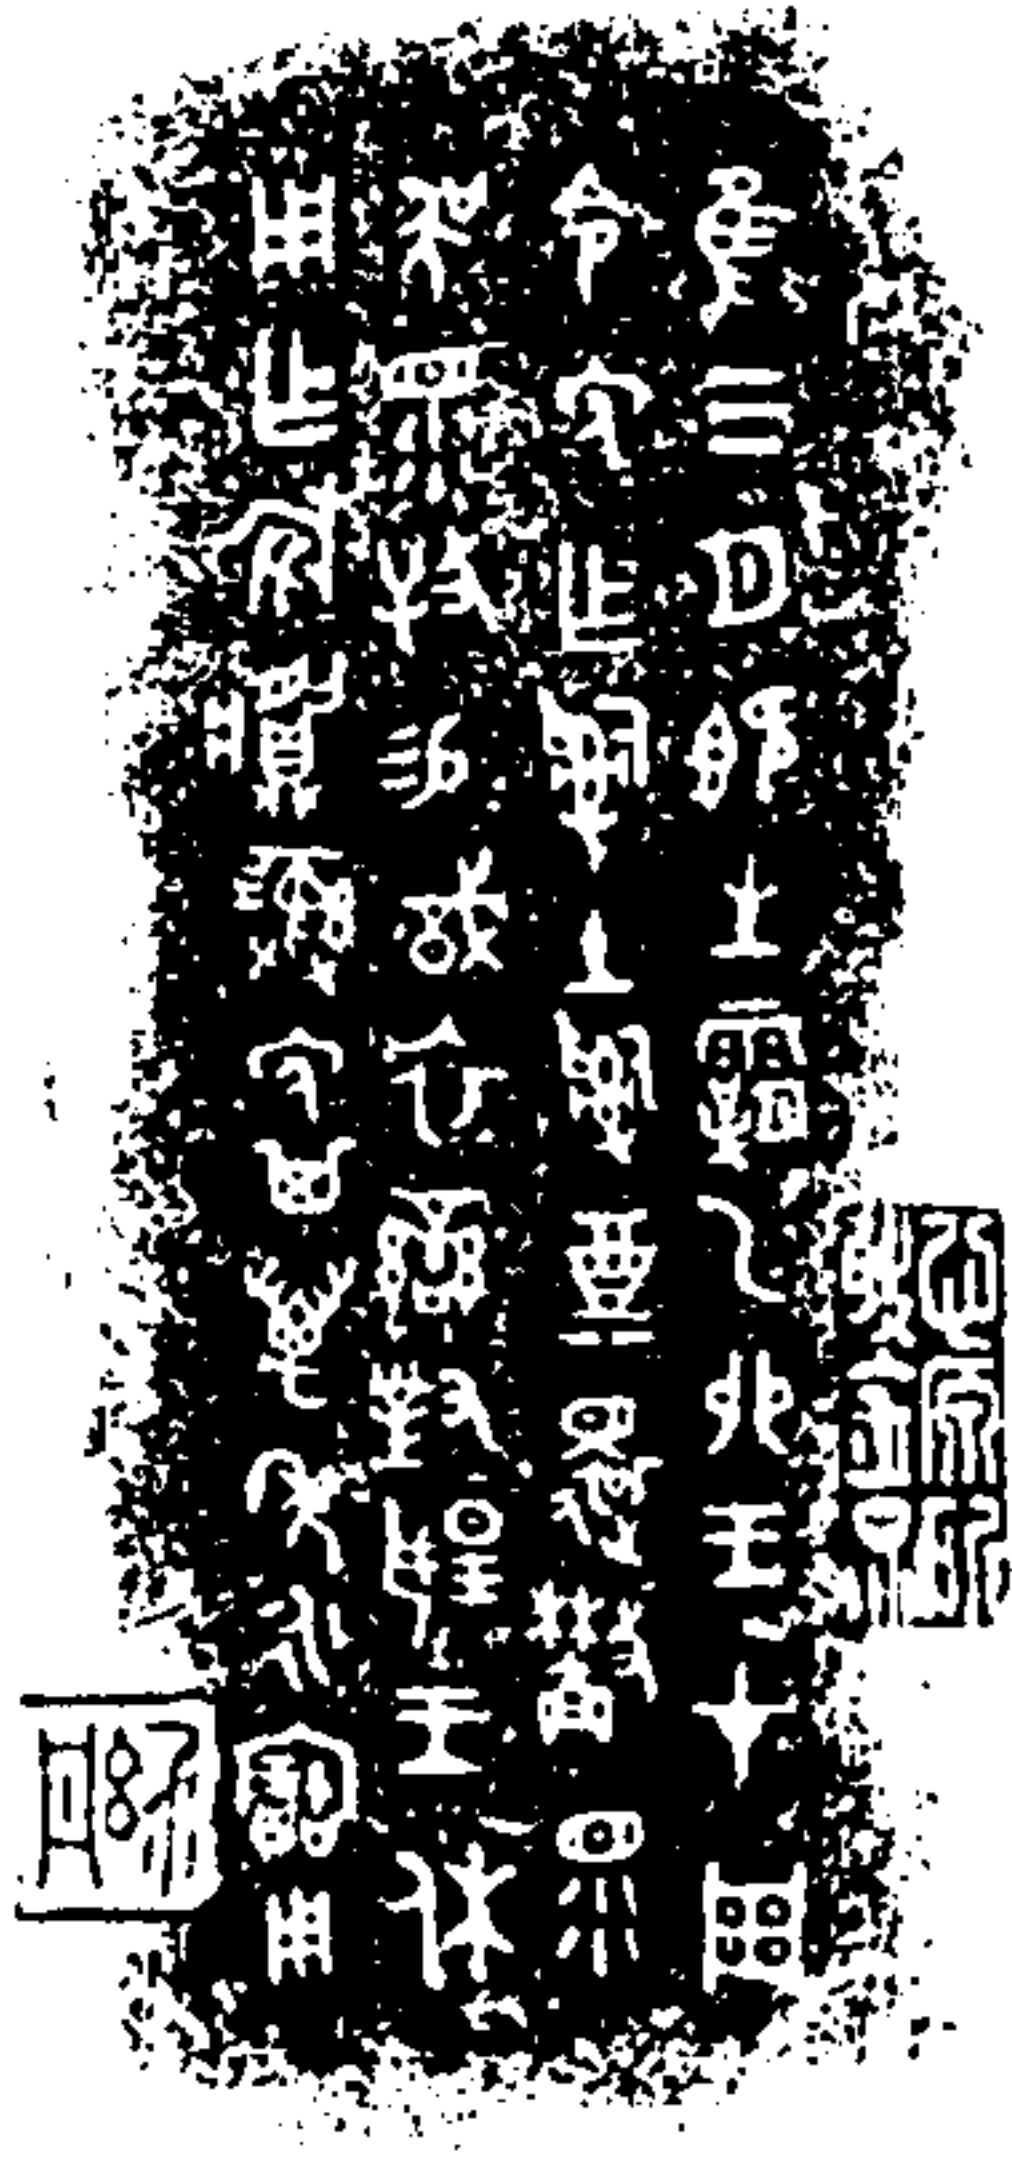 隹三月既生霸乙卯王才周
令免乍𤔲土𤔲奠還林眔
吳眔牧易戠衣䜌對揚王休
用乍旅䵼彝免其萬年永寶用